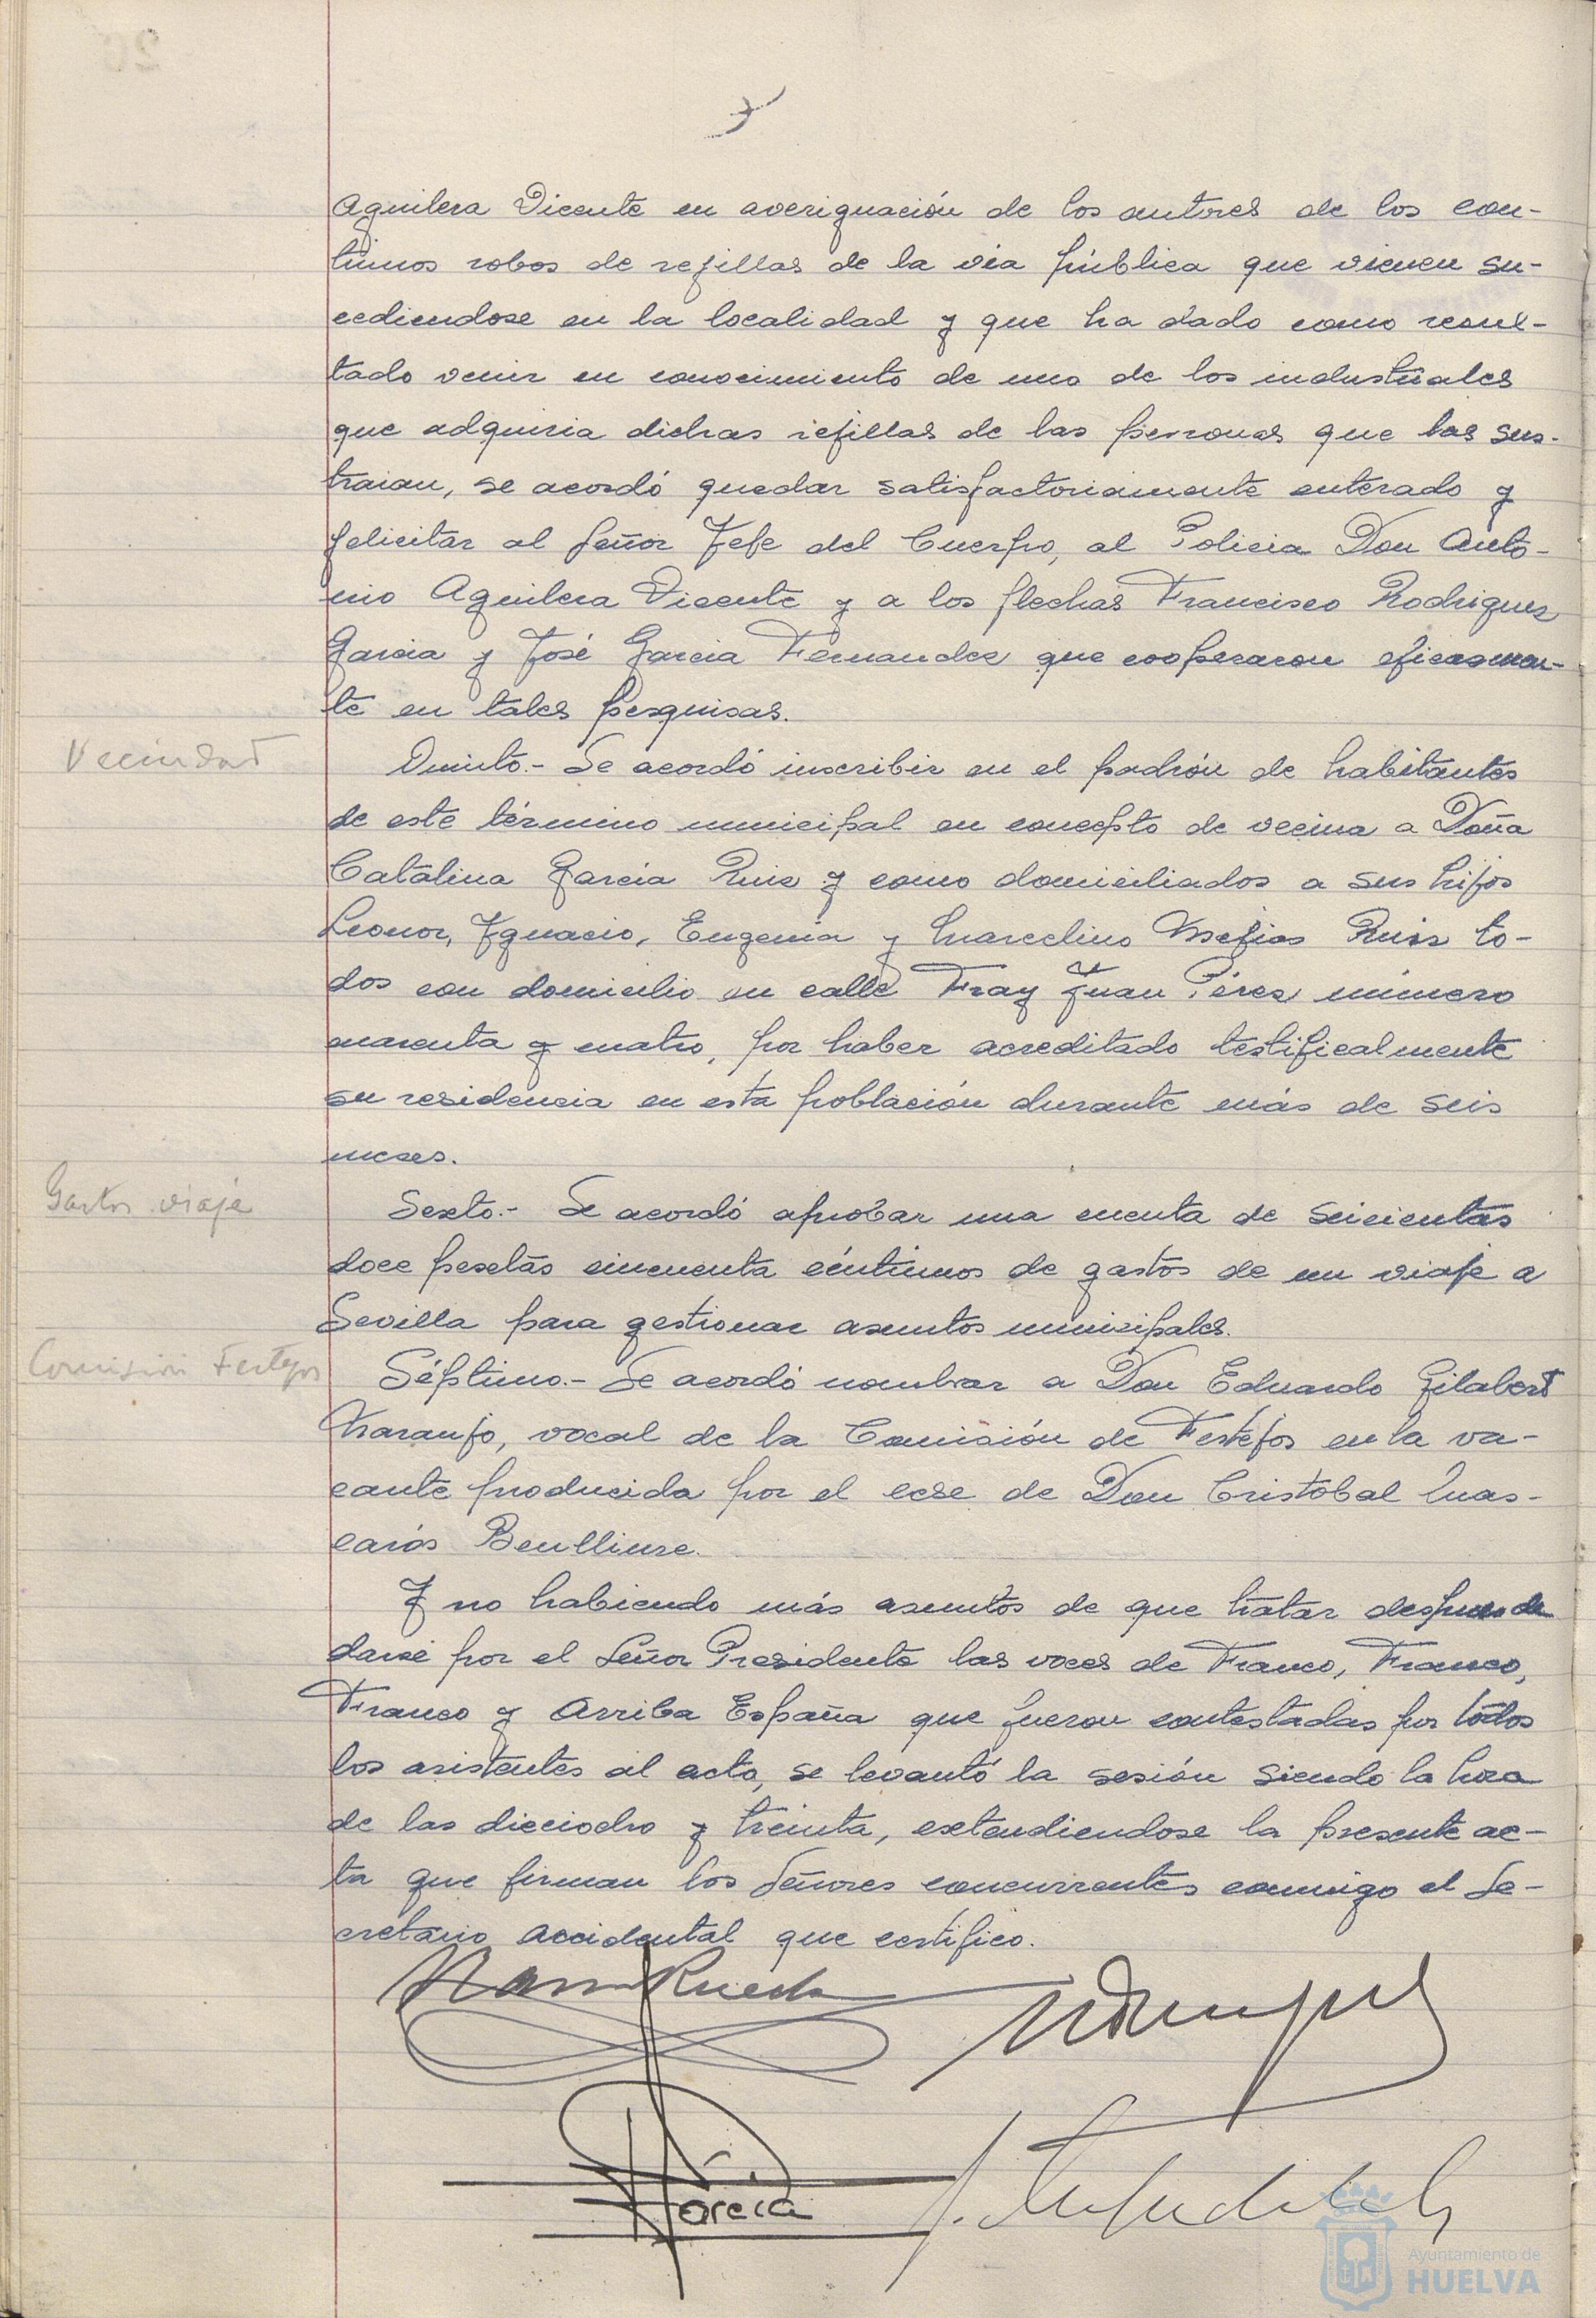 Aguilera Vicente en averiguación de los autores de los con-
tinuos robos de rejillas de la via pública que vienen su-
cediendose en la localidad y que ha dado como resul-
tado venir en conocimiento de uno de los industriales
que adquiria dichas rejillas de las personas que las sus-
traian, se acordó quedar satisfactoriamente enterado y
felicitar al Señor Jefe del Cuerpo, al Policia Don Anto-
nio Aguilera Vicente y a los flechas Francisco Rodriguez
Garcia y José Garcia Fernandez que cooperaron eficazmen-
te en tales pesquisas.
Vecindad
Quinto.- Se acordó inscribir en el padrón de habitantes
de este término municipal en concepto de vecina a Doña
Catalina Garcia Ruiz y como domiciliados a sus hijos
Leonor, Ignacio, Eugenia y Marcelino Mejias Ruiz to-
dos con domicilio en calle Fray Juan Pérez número
cuarenta y cuatro, por haber acreditado testificalmente
su residencia en esta población durante más de seis
meses.
Gastos viaje
Sexto.- Se acordó aprobar una cuenta de seicientas
doce pesetas cincuenta céntimos de gastos de un viaje a
Sevilla para gestionar asuntos municipales.
Comisión Festejos
Séptimo.- Se acordó nombrar a Don Eduardo Gilabert
Naranjo, vocal de la Comisión de Festejos en la va-
cante producida por el cese de Don Cristobal Mas-
carós Benlliure.
Y no habiendo más asuntos de que tratar despues de
darse por el Señor Presidente las voces de Franco, Franco,
Franco y Arriba España que fueron contestadas por todos
los asistentes al acto, se levantó la sesión siendo la hora
de las dieciocho y treinta, extendiendose la presente ac-
ta que firman los Señores concurrentes conmigo el Se-
cretario accidental que certifico.
Rueda
Garcia
Ayuntamiento de
HUELVA